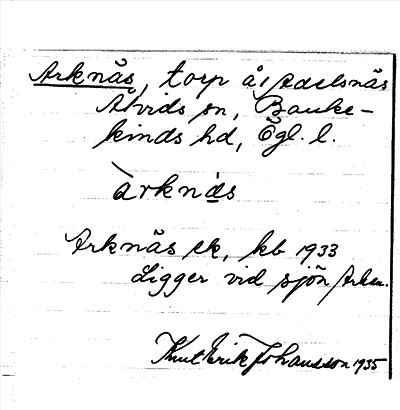 Arknäs, torp å Adelsnäs
Åtvids sn, Banke-
kinds hd, Ögl. l.
àrknäs
Arknäs ek, kb 1933
Ligger vid sjön Arken.
Knut Erik Johansson 1935